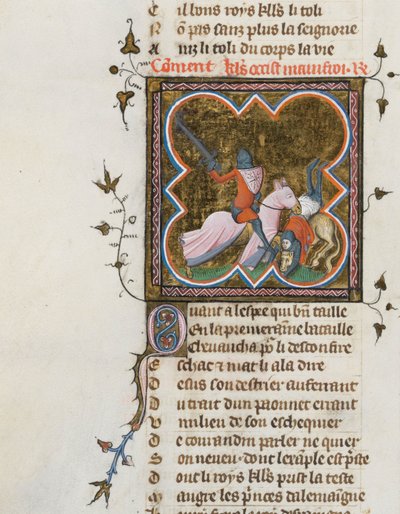 C il bons roys kl̄les li toli
N ō pas sanz plus la seignorie
A inz li toli du corps la vie
Cōment kl̄s occist mainfroi. Re
Quant a lespee qui bn̄ taille
En la premerainne bataille
Chevaucha pr̄ li desconfire
E schac & mat li ala dire
D esus son destrier auferrant
D u trait dun paonnet errant
O u milieu de son eschequier
D e courandin parler ne quier
S on neveu dont lexāple est pͤste
D ont li roys kl̄s prist la teste
M augre les pͥnces dalemaigne